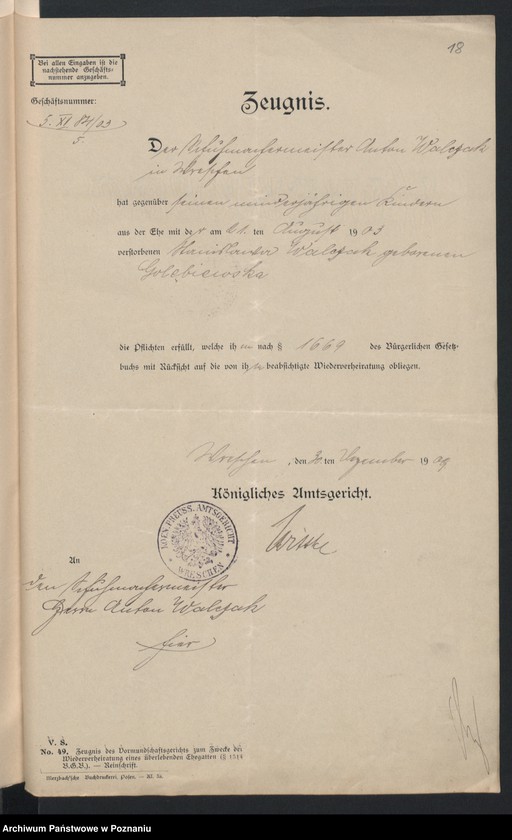 18
Bei allen Eingaben ist die
nachstehende Geschäfts-
nummer anzugeben.
Geschäftsnummer:
5. XI. 84/03
5.
Zeugnis.
Der Schuhmachermeister Anton Walczak
in Wreschen
hat gegenüber seinen minderjährigen Kindern
aus der Ehe mit der am 21. ten August 1903
verstorbenen Stanislawa Walczak geborenen
Golębiewska
die Pflichten erfüllt, welche ihm nach § 1669 des Bürgerlichen Gesetz-
buchs mit Rücksicht auf die von ihm beabsichtigte Wiederverheiratung obliegen.
Wreschen, den 30. ten Dezember 1909
Königliches Amtsgericht.
KOEN. PREUSS. AMTSGERICHT
* WRESCHEN *
An
den Schuhmachermeister
Herrn Anton Walczak
hier
V. S.
No. 49. Zeugnis des Vormundschaftsgerichts zum Zwecke der
Wiederverheiratung eines überlebenden Ehegatten (§ 1314
B.G.B.). — Reinschrift.
Merzbach'sche Buchdruckerei, Posen.
Archiwum Państwowe w Poznaniu